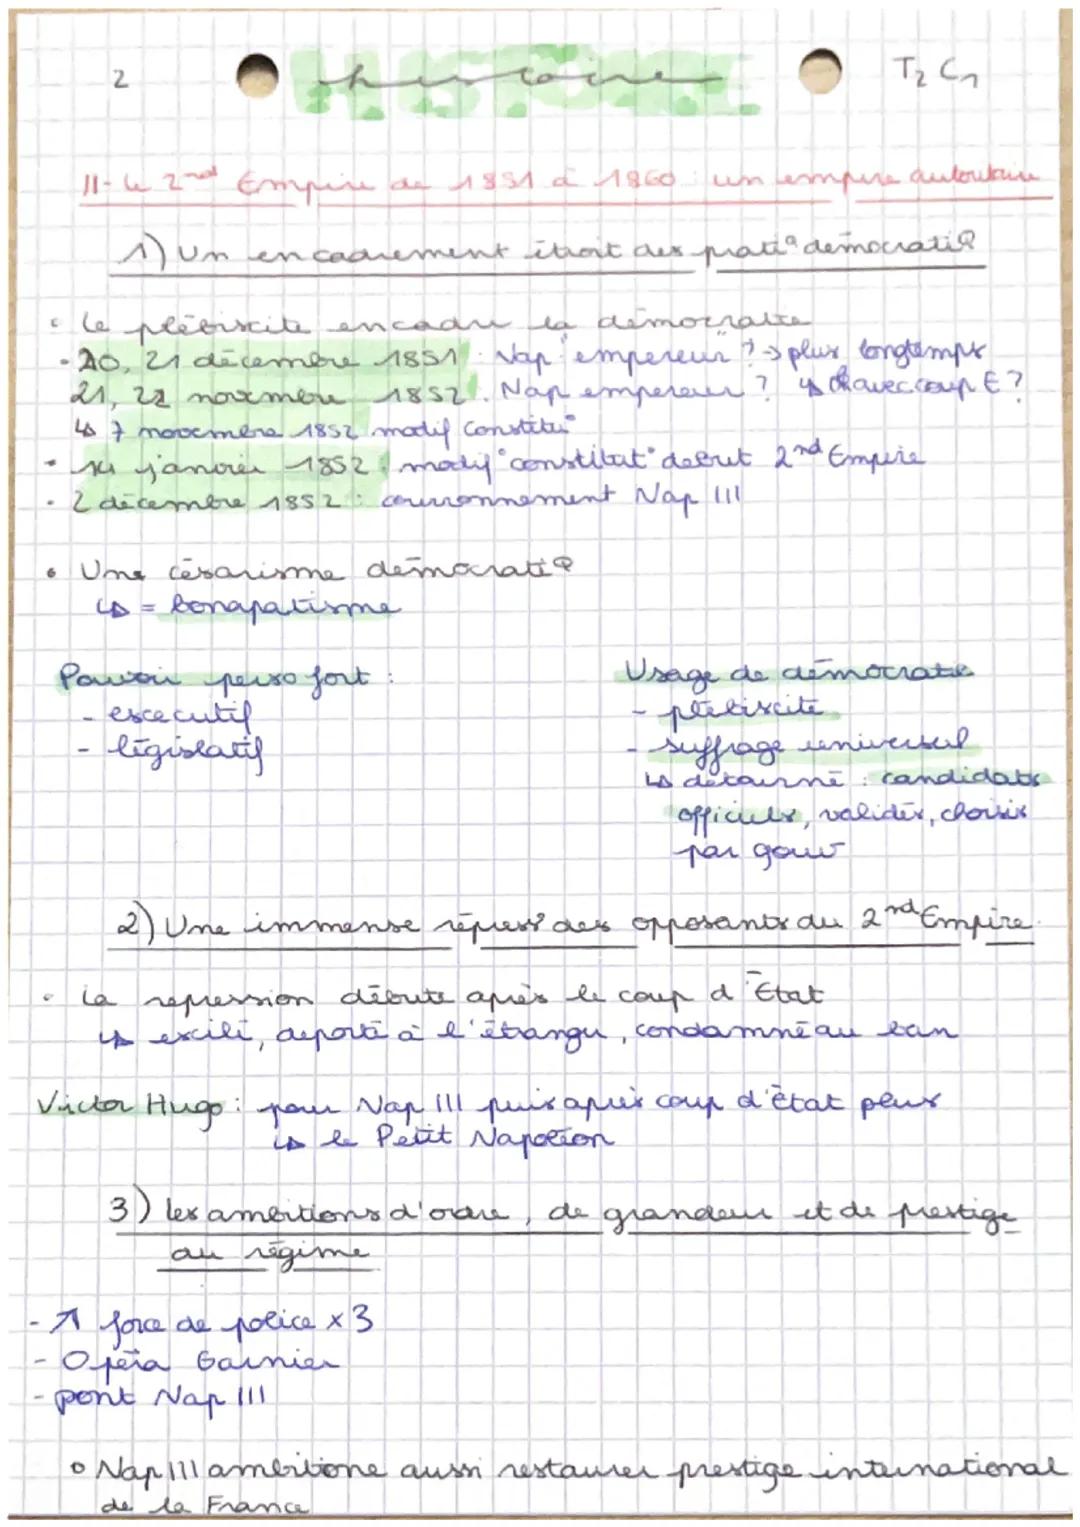 2
HISTOIRE
histoire
T2 C1
II- Le 2nd Empire de 1851 à 1860 : un empire autoritaire
1) Un encadrement étroit des pratiq démocratiq
• Le plébiscite encadre la démocratie
- 20, 21 décembre 1851 : Nap "empereur" ? → plus longtemps
21, 22 novembre 1852 : Nap empereur ? ↳ avec coup E ?
↳ 7 novembre 1852 modif constitu°
• 14 janvier 1852 : modif° constitut° début 2nd Empire
- 2 décembre 1852 : couronnement Nap III
• Une césarisme démocratiq
↳ = bonapatisme
Pouvoir perso fort :
- excecutif
- législatif
Usage de démocratie
- plébiscite
- suffrage universel
↳ détourné : candidats
officiels, validés, choisis
par gouv
2) Une immense répress° des opposants du 2nd Empire
• La repression débute après le coup d'État
↳ exilé, déporté à l'étranger, condamné au ban
Victor Hugo : pour Nap III puis après coup d'État plus
↳ le Petit Napoléon
3) Les ambitions d'ordre, de grandeur et de prestige
du régime
- ↗ force de police x3
- Opéra Garnier
- pont Nap III
• Nap III ambitione aussi restaurer prestige international
de la France